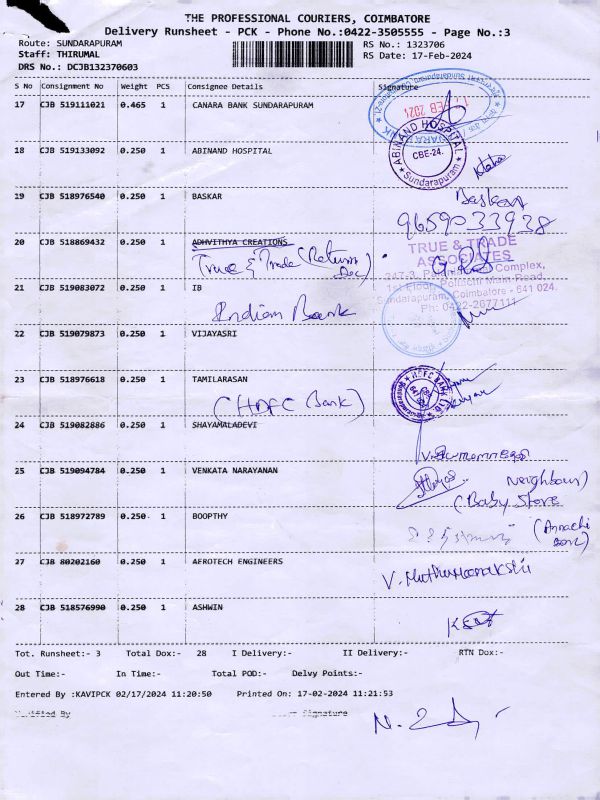 THE PROFESSIONAL COURIERS, COIMBATORE
Delivery Runsheet - PCK - Phone No.:0422-3505555 - Page No.:3
Route: SUNDARAPURAM
RS No.: 1323706
Staff: THIRUMAL
RS Date: 17-Feb-2024
DRS No.: DCJB132370603
S No Consignment No Weight PCS Consignee Details Signature
17 CJB 519111021 0.465 1 CANARA BANK SUNDARAPURAM
FEB 2024
18 CJB 519133092 0.250 1 ABINAND HOSPITAL
ABINAND HOSPITAL
CBE-24.
Sundarapuram
19 CJB 518976540 0.250 1 BASKAR
Baskar
9659033938
20 CJB 518869432 0.250 1 ADHVITHYA CREATIONS
True & Trade (Return Doc)
TRUE & TRADE
ASSOCIATES
Complex,
1st Floor, Pollachi Main Road,
Sundarapuram, Coimbatore - 641 024.
Ph: 0422-2677111
21 CJB 519083072 0.250 1 IB
Indian Bank
22 CJB 519079873 0.250 1 VIJAYASRI
23 CJB 518976618 0.250 1 TAMILARASAN
(HDFC Bank)
HDFC BANK LTD
24 CJB 519082886 0.250 1 SHAYAMALADEVI
25 CJB 519094784 0.250 1 VENKATA NARAYANAN
Neighbour)
(Baby Store
26 CJB 518972789 0.250 1 BOOPTHY
(Annachi
27 CJB 80202160 0.250 1 AFROTECH ENGINEERS
V. Muthumeenakshi
28 CJB 518576990 0.250 1 ASHWIN
Tot. Runsheet:- 3 Total Dox:- 28 I Delivery:- II Delivery:- RTN Dox:-
Out Time:- In Time:- Total POD:- Delvy Points:-
Entered By :KAVIPCK 02/17/2024 11:20:50 Printed On: 17-02-2024 11:21:53
Verified By Signature